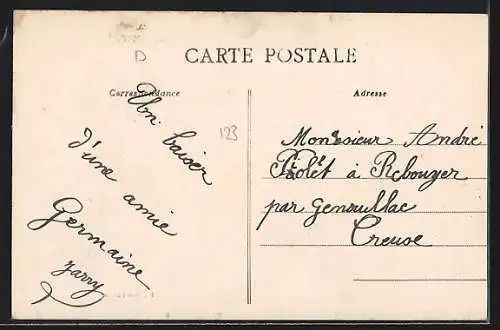 D
CARTE POSTALE
Correspondance
Adresse
Un baiser
d'une amie
Germaine
Jarry
123
Monsieur André
Piolet à Rebouyer
par Genouillac
Creuse